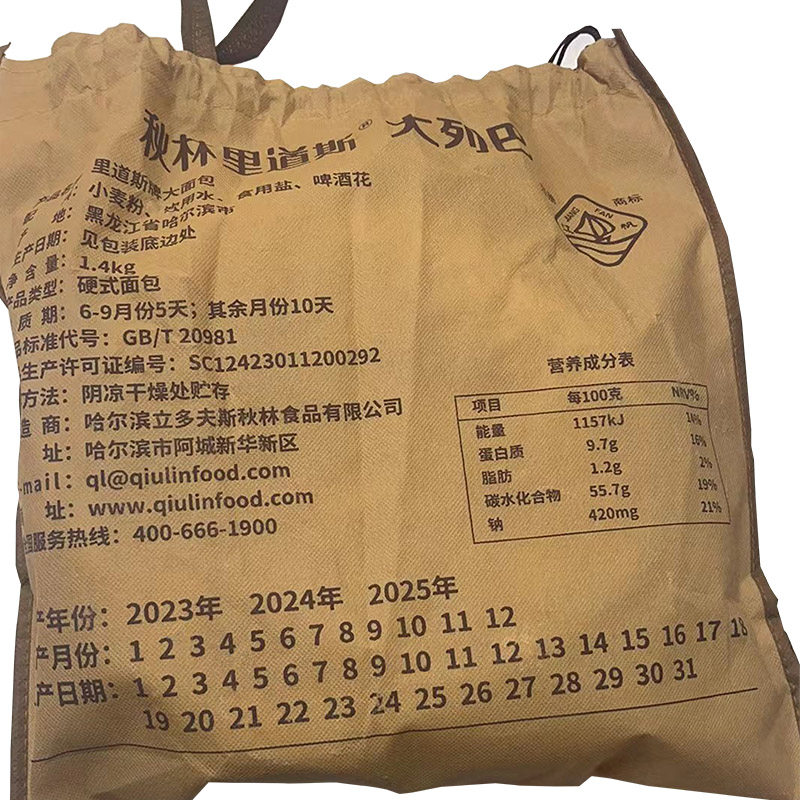 秋林里道斯® 大列巴
里道斯牌大面包
小麦粉、饮用水、食用盐、啤酒花
地：黑龙江省哈尔滨市
生产日期：见包装底边处
净含量：1.4kg
产品类型：硬式面包
质 期：6-9月份5天；其余月份10天
品标准代号：GB/T 20981
生产许可证编号：SC12423011200292
方法：阴凉干燥处贮存
造 商：哈尔滨立多夫斯秋林食品有限公司
址：哈尔滨市阿城新华新区
-mail：ql@qiulinfood.com
址：www.qiulinfood.com
服务热线：400-666-1900
商标
JIANG FAN
江 帆
营养成分表
项目 每100克 NRV%
能量 1157kJ 14%
蛋白质 9.7g 16%
脂肪 1.2g 2%
碳水化合物 55.7g 19%
钠 420mg 21%
产年份：2023年 2024年 2025年
产月份：1 2 3 4 5 6 7 8 9 10 11 12
产日期：1 2 3 4 5 6 7 8 9 10 11 12 13 14 15 16 17 18
19 20 21 22 23 24 25 26 27 28 29 30 31